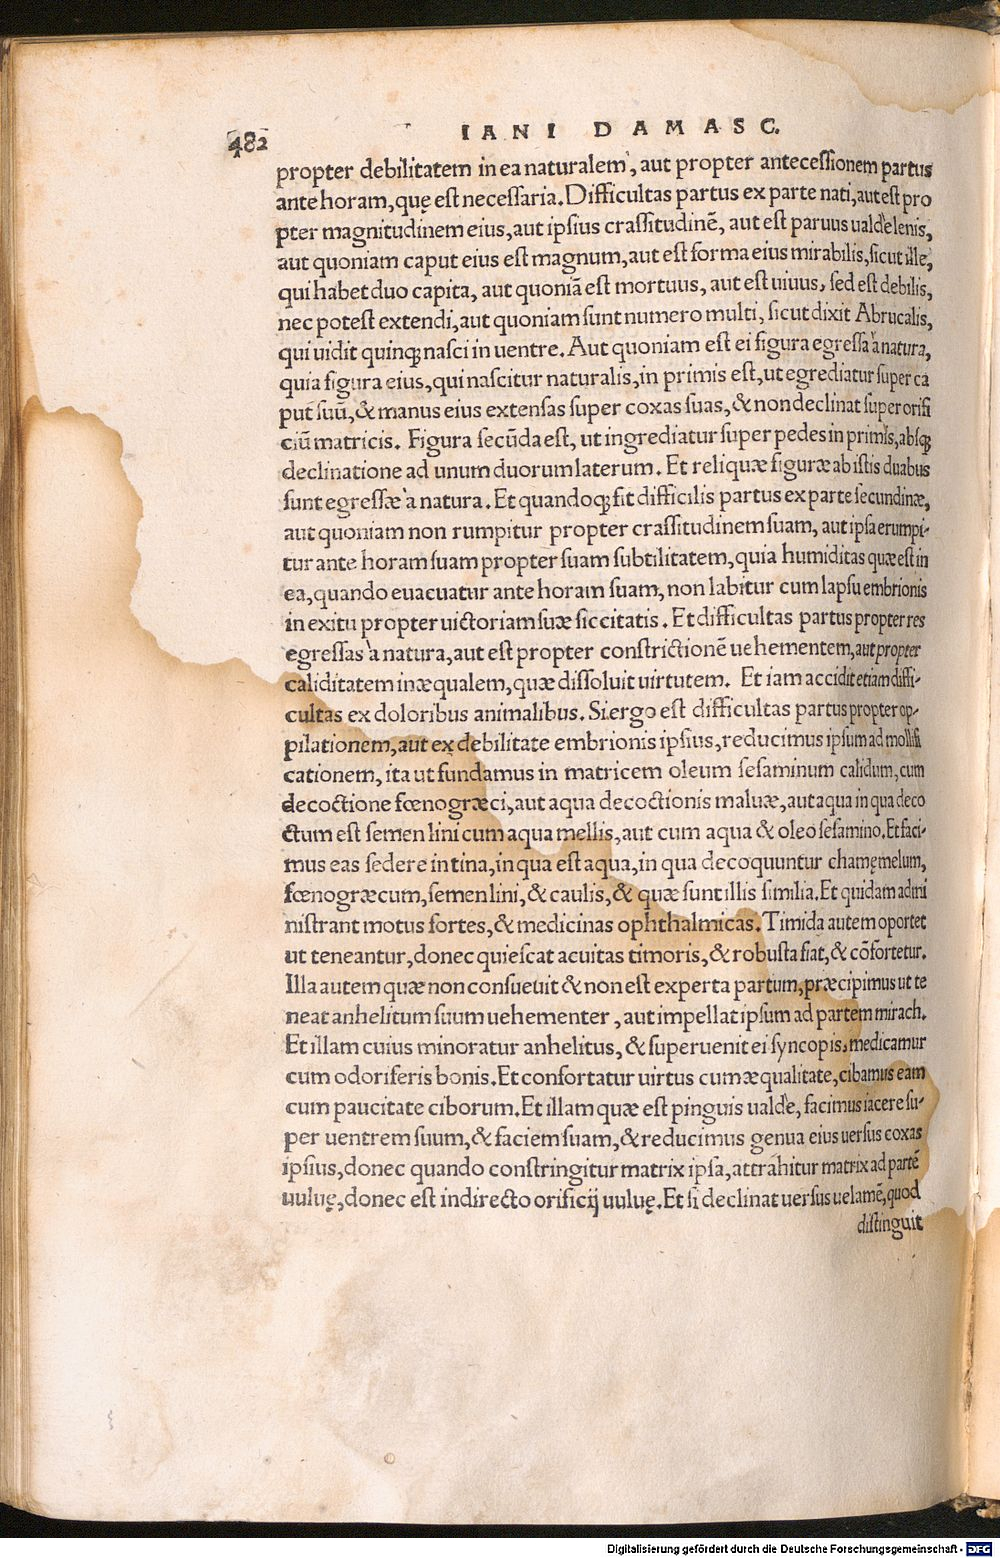 482
IANI DAMASC.
propter debilitatem in ea naturalem, aut propter antecessionem partus
ante horam, quę est necessaria. Difficultas partus ex parte nati, aut est pro
pter magnitudinem eius, aut ipsius crassitudinē, aut est paruus ualde lenis,
aut quoniam caput eius est magnum, aut est forma eius mirabilis, sicut ille,
qui habet duo capita, aut quoniā est mortuus, aut est uiuus, sed est debilis,
nec potest extendi, aut quoniam sunt numero multi, sicut dixit Abrucalis,
qui uidit quinq; nasci in uentre. Aut quoniam est ei figura egressa à natura,
quia figura eius, qui nascitur naturalis, in primis est, ut egrediatur super ca
put suū, & manus eius extensas super coxas suas, & non declinat super orifi
ciū matricis. Figura secūda est, ut ingrediatur super pedes in primis, absq;
declinatione ad unum duorum laterum. Et reliquæ figuræ ab istis duabus
sunt egressæ à natura. Et quandoq; fit difficilis partus ex parte secundinæ,
aut quoniam non rumpitur propter crassitudinem suam, aut ipsa erumpi-
tur ante horam suam propter suam subtilitatem, quia humiditas quæ est in
ea, quando euacuatur ante horam suam, non labitur cum lapsu embrionis
in exitu propter uictoriam suæ siccitatis. Et difficultas partus propter res
egressas à natura, aut est propter constrictionē uehementem, aut propter
caliditatem inæqualem, quæ dissoluit uirtutem. Et iam accidit etiam diffi-
cultas ex doloribus animalibus. Si ergo est difficultas partus propter op-
pilationem, aut ex debilitate embrionis ipsius, reducimus ipsum ad mollifi
cationem, ita ut fundamus in matricem oleum sesaminum calidum, cum
decoctione fœnogræci, aut aqua decoctionis maluæ, aut aqua in qua deco
ctum est semen lini cum aqua mellis, aut cum aqua & oleo sesamino. Et faci-
mus eas sedere in tina, in qua est aqua, in qua decoquuntur chamęmelum,
fœnogræcum, semen lini, & caulis, & quæ sunt illis similia. Et quidam admi
nistrant motus fortes, & medicinas ophthalmicas. Timida autem oportet
ut teneantur, donec quiescat acuitas timoris, & robusta fiat, & cōfortetur.
Illa autem quæ non consueuit & non est experta partum, præcipimus ut te
neat anhelitum suum uehementer, aut impellat ipsum ad partem mirach.
Et illam cuius minoratur anhelitus, & superuenit ei syncopis, medicamur
cum odoriferis bonis. Et confortatur uirtus cum æqualitate, cibamus eam
cum paucitate ciborum. Et illam quæ est pinguis ualde, facimus iacere su-
per uentrem suum, & faciem suam, & reducimus genua eius uersus coxas
ipsius, donec quando constringitur matrix ipsa, attrahitur matrix ad partē
uuluę, donec est in directo orificij uuluę. Et si declinat uersus uelamē, quod
distinguit
Digitalisierung gefördert durch die Deutsche Forschungsgemeinschaft - DFG